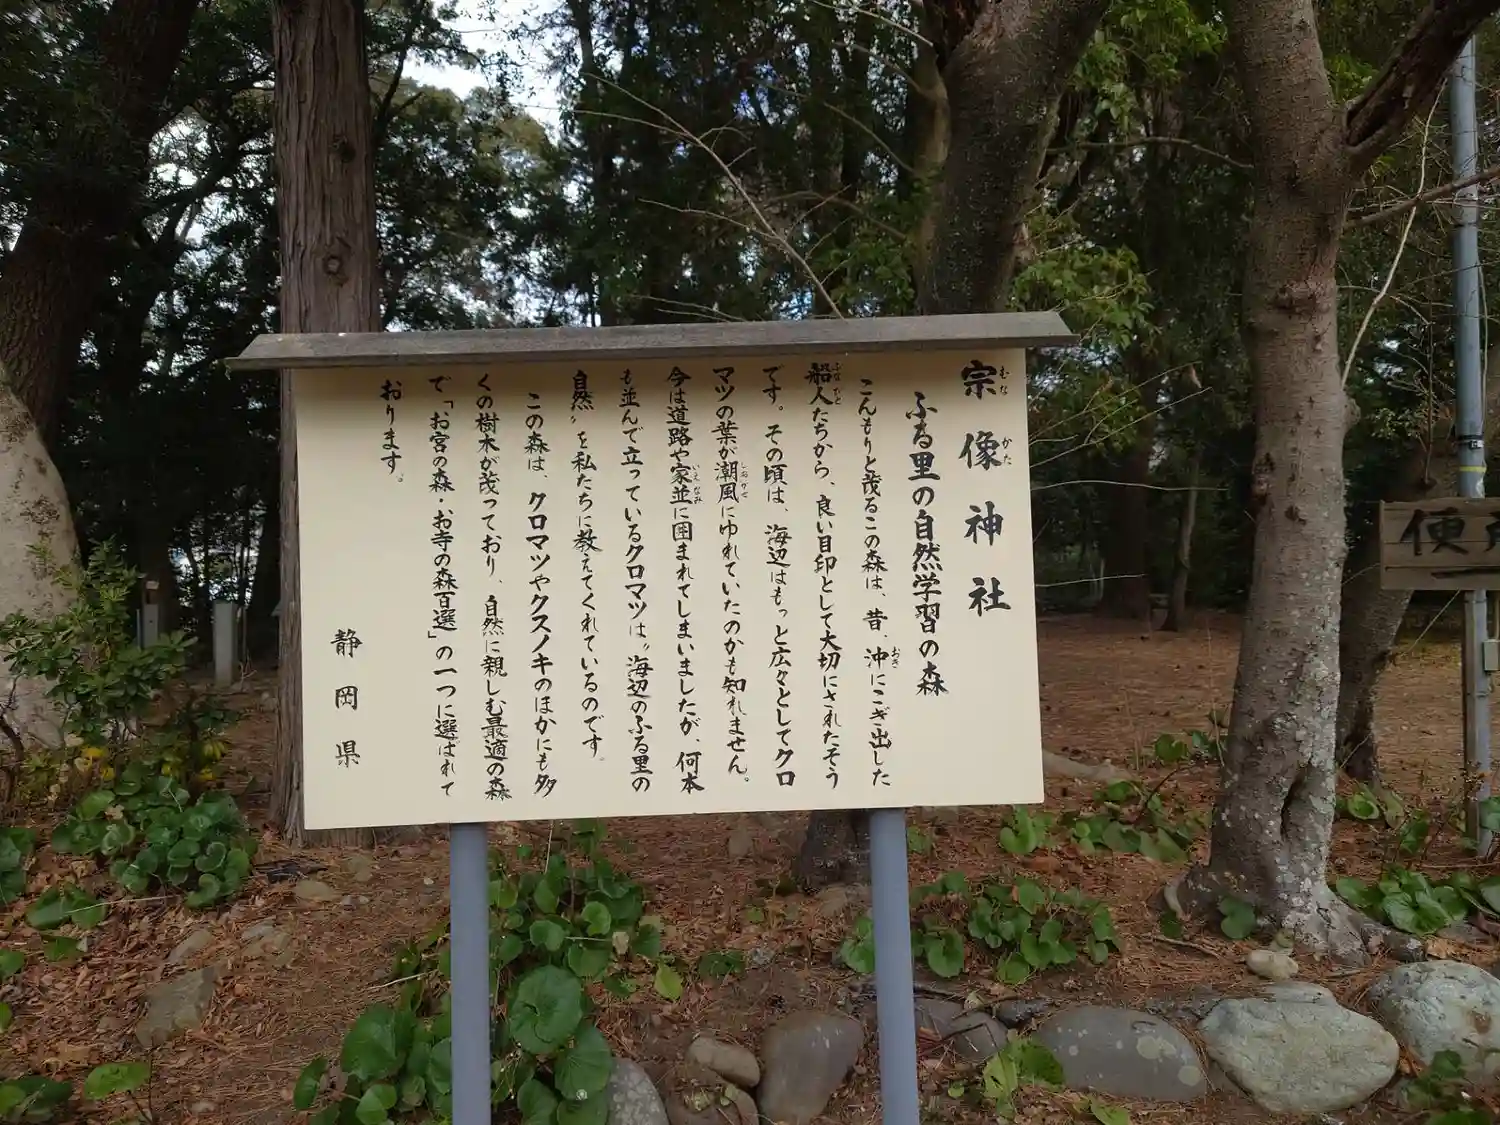 宗像神社
ふる里の自然学習の森
こんもりと茂るこの森は、昔、沖にこぎ出した
船人たちから、良い目印として大切にされたそう
です。その頃は、海辺はもっと広々としてクロ
マツの葉が潮風にゆれていたのかも知れません。
今は道路や家並に囲まれてしまいましたが、何本
も並んで立っているクロマツは〝海辺のふる里の
自然〟を私たちに教えてくれているのです。
この森は、クロマツやクスノキのほかにも多
くの樹木が茂っており、自然に親しむ最適の森
で「お宮の森・お寺の森百選」の一つに選ばれて
おります。
静岡県
便所